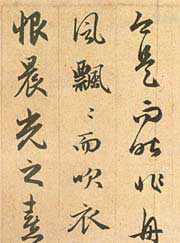 今是而昨非舟
風飄〻而吹衣
恨晨光之熹